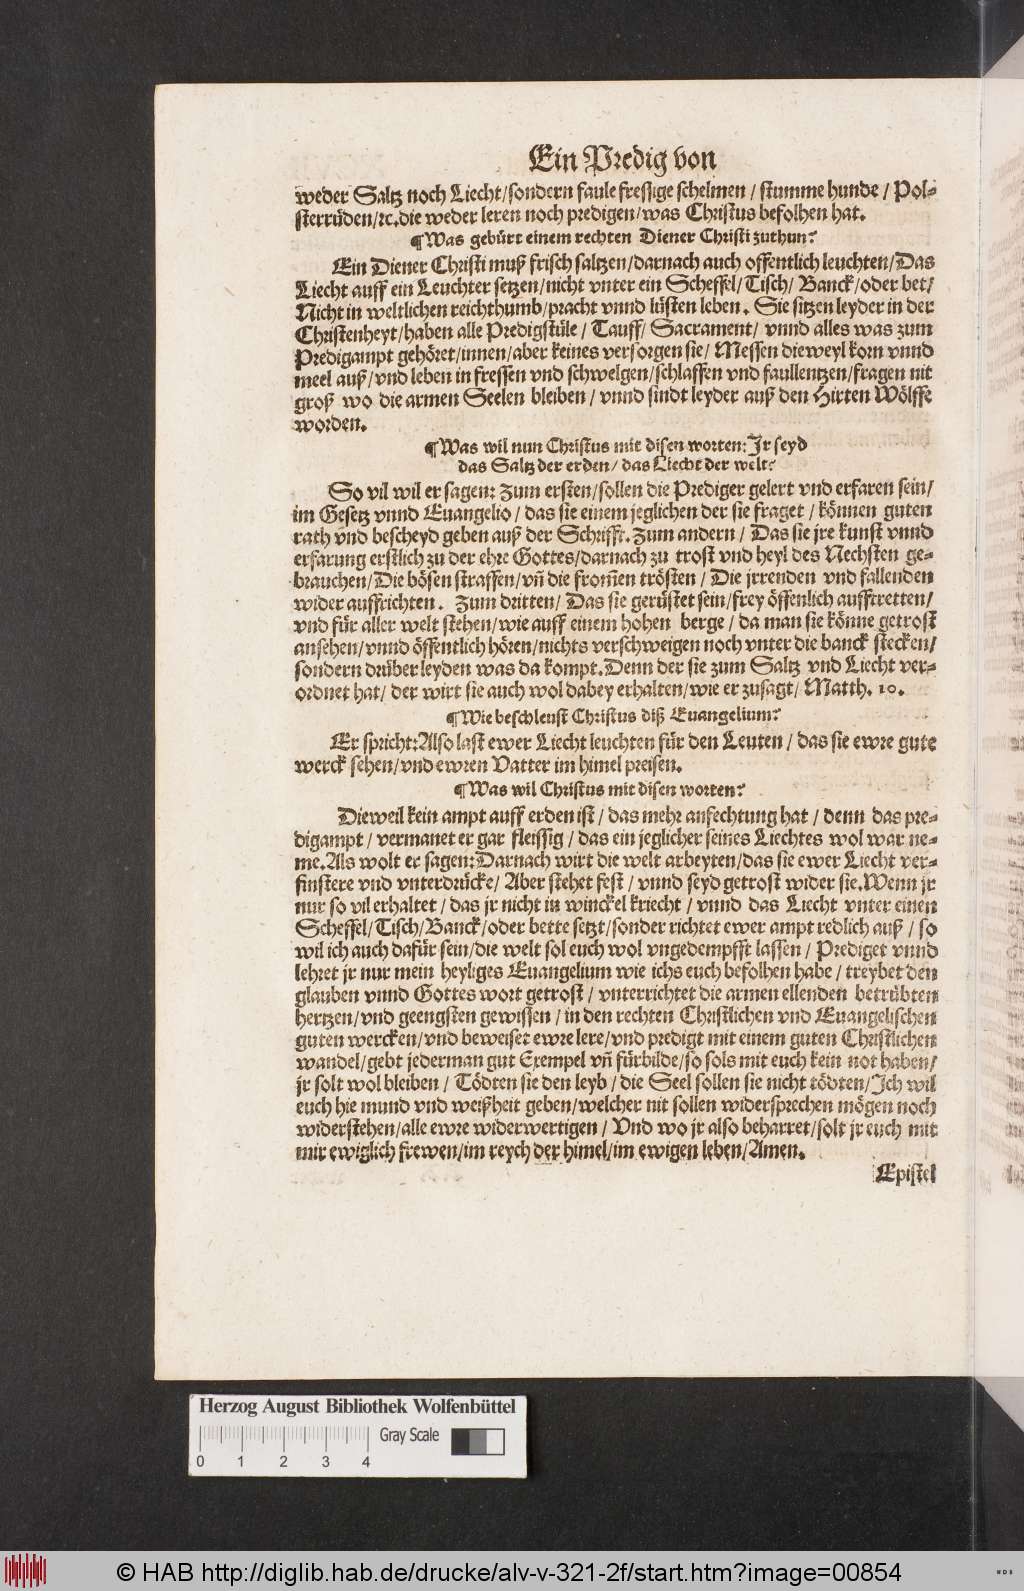 Ein Predig von
weder Saltz noch Liecht/sondern faule fressige schelmen / stumme hunde / Pol-
sterrüden/ꝛc.die weder leren noch predigen/was Christus befolhen hat.
¶Was gebürt einem rechten Diener Christi zuthun?
Ein Diener Christi muß frisch saltzen/darnach auch offentlich leuchten/Das
Liecht auff ein Leuchter setzen/nicht vnter ein Scheffel/Tisch/ Banck/oder bet/
Nicht in weltlichen reichthumb/pracht vnnd lüsten leben. Sie sitzen leyder in der
Christenheyt/haben alle Predigstüle/ Tauff/ Sacrament/ vnnd alles was zum
Predigampt gehöret/innen/aber keines versorgen sie/ Messen dieweyl korn vnnd
meel auß/vnd leben in fressen vnd schwelgen/schlaffen vnd faullentzen/fragen nit
groß wo die armen Seelen bleiben / vnnd sindt leyder auß den Hirten Wölffe
worden.
¶Was wil nun Christus mit disen worten: Jr seyd
das Saltz der erden/ das Liecht der welt?
So vil wil er sagen: Zum ersten/sollen die Prediger gelert vnd erfaren sein/
im Gesetz vnnd Euangelio / das sie einem jeglichen der sie fraget / können guten
rath vnd bescheyd geben auß der Schrifft. Zum andern / Das sie jre kunst vnnd
erfarung erstlich zu der ehre Gottes/darnach zu trost vnd heyl des Nechsten ge-
brauchen/Die bösen straffen/vñ die from̃en trösten / Die jrrenden vnd fallenden
wider auffrichten. Zum dritten/ Das sie gerüstet sein/frey öffenlich aufftretten/
vnd für aller welt stehen/wie auff einem hohen berge / da man sie könne getrost
ansehen/vnnd öffentlich hören/nichts verschweigen noch vnter die banck stecken/
sondern drüber leyden was da kompt.Denn der sie zum Saltz vnd Liecht ver-
ordnet hat/ der wirt sie auch wol dabey erhalten/wie er zusagt/ Matth. 10.
¶Wie beschleust Christus diß Euangelium?
Er spricht:Also last ewer Liecht leuchten für den Leuten / das sie ewre gute
werck sehen/vnd ewren Vatter im himel preisen.
¶Was wil Christus mit disen worten?
Dieweil kein ampt auff erden ist / das mehr anfechtung hat / denn das pre-
digampt / vermanet er gar fleissig / das ein jeglicher seines Liechtes wol war ne-
me.Als wolt er sagen:Darnach wirt die welt arbeyten/das sie ewer Liecht ver-
finstere vnd vnterdrücke/ Aber stehet fest / vnnd seyd getrost wider sie.Wenn jr
nur so vil erhaltet / das jr nicht in winckel kriecht / vnnd das Liecht vnter einen
Scheffel/Tisch/Banck/oder bette setzt/sonder richtet ewer ampt redlich auß / so
wil ich auch dafür sein/die welt sol euch wol vngedempfft lassen / Prediget vnnd
lehret jr nur mein heyliges Euangelium wie ichs euch befolhen habe / treybet den
glauben vnnd Gottes wort getrost / vnterrichtet die armen ellenden betrübten
hertzen/vnd geengsten gewissen / in den rechten Christlichen vnd Euangelischen
guten wercken/vnd beweiset ewre lere/vnd predigt mit einem guten Christlichen
wandel/gebt jederman gut Exempel vñ fürbilde/so sols mit euch kein not haben/
jr solt wol bleiben / Tödten sie den leyb / die Seel sollen sie nicht tödten/Jch wil
euch hie mund vnd weißheit geben/welcher nit sollen widersprechen mögen noch
widerstehen/alle ewre widerwertigen / Vnd wo jr also beharret/solt jr euch mit
mir ewiglich frewen/im reych der himel/im ewigen leben/Amen.
Epistel
Herzog August Bibliothek Wolfenbüttel
Gray Scale
0 1 2 3 4
© HAB http://diglib.hab.de/drucke/alv-v-321-2f/start.htm?image=00854